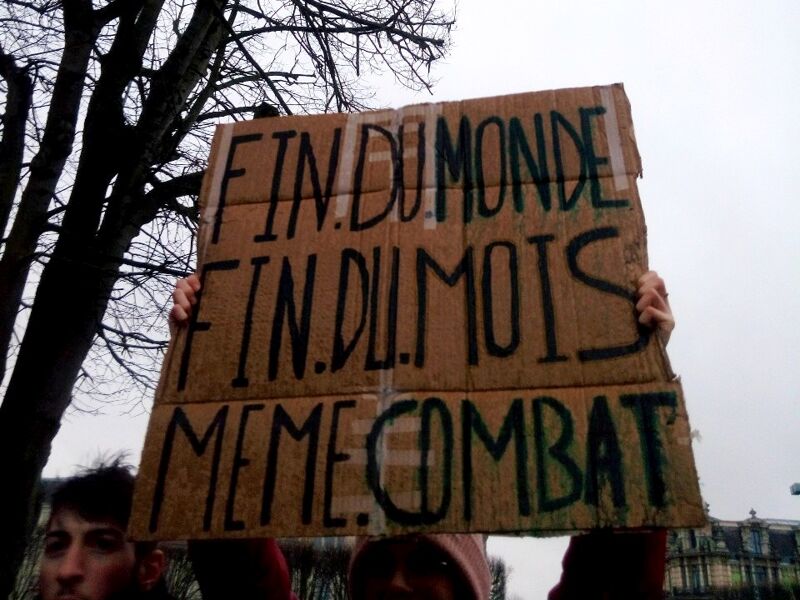 FIN.DU.MONDE
FIN.DU.MOIS
MEME.COMBAT